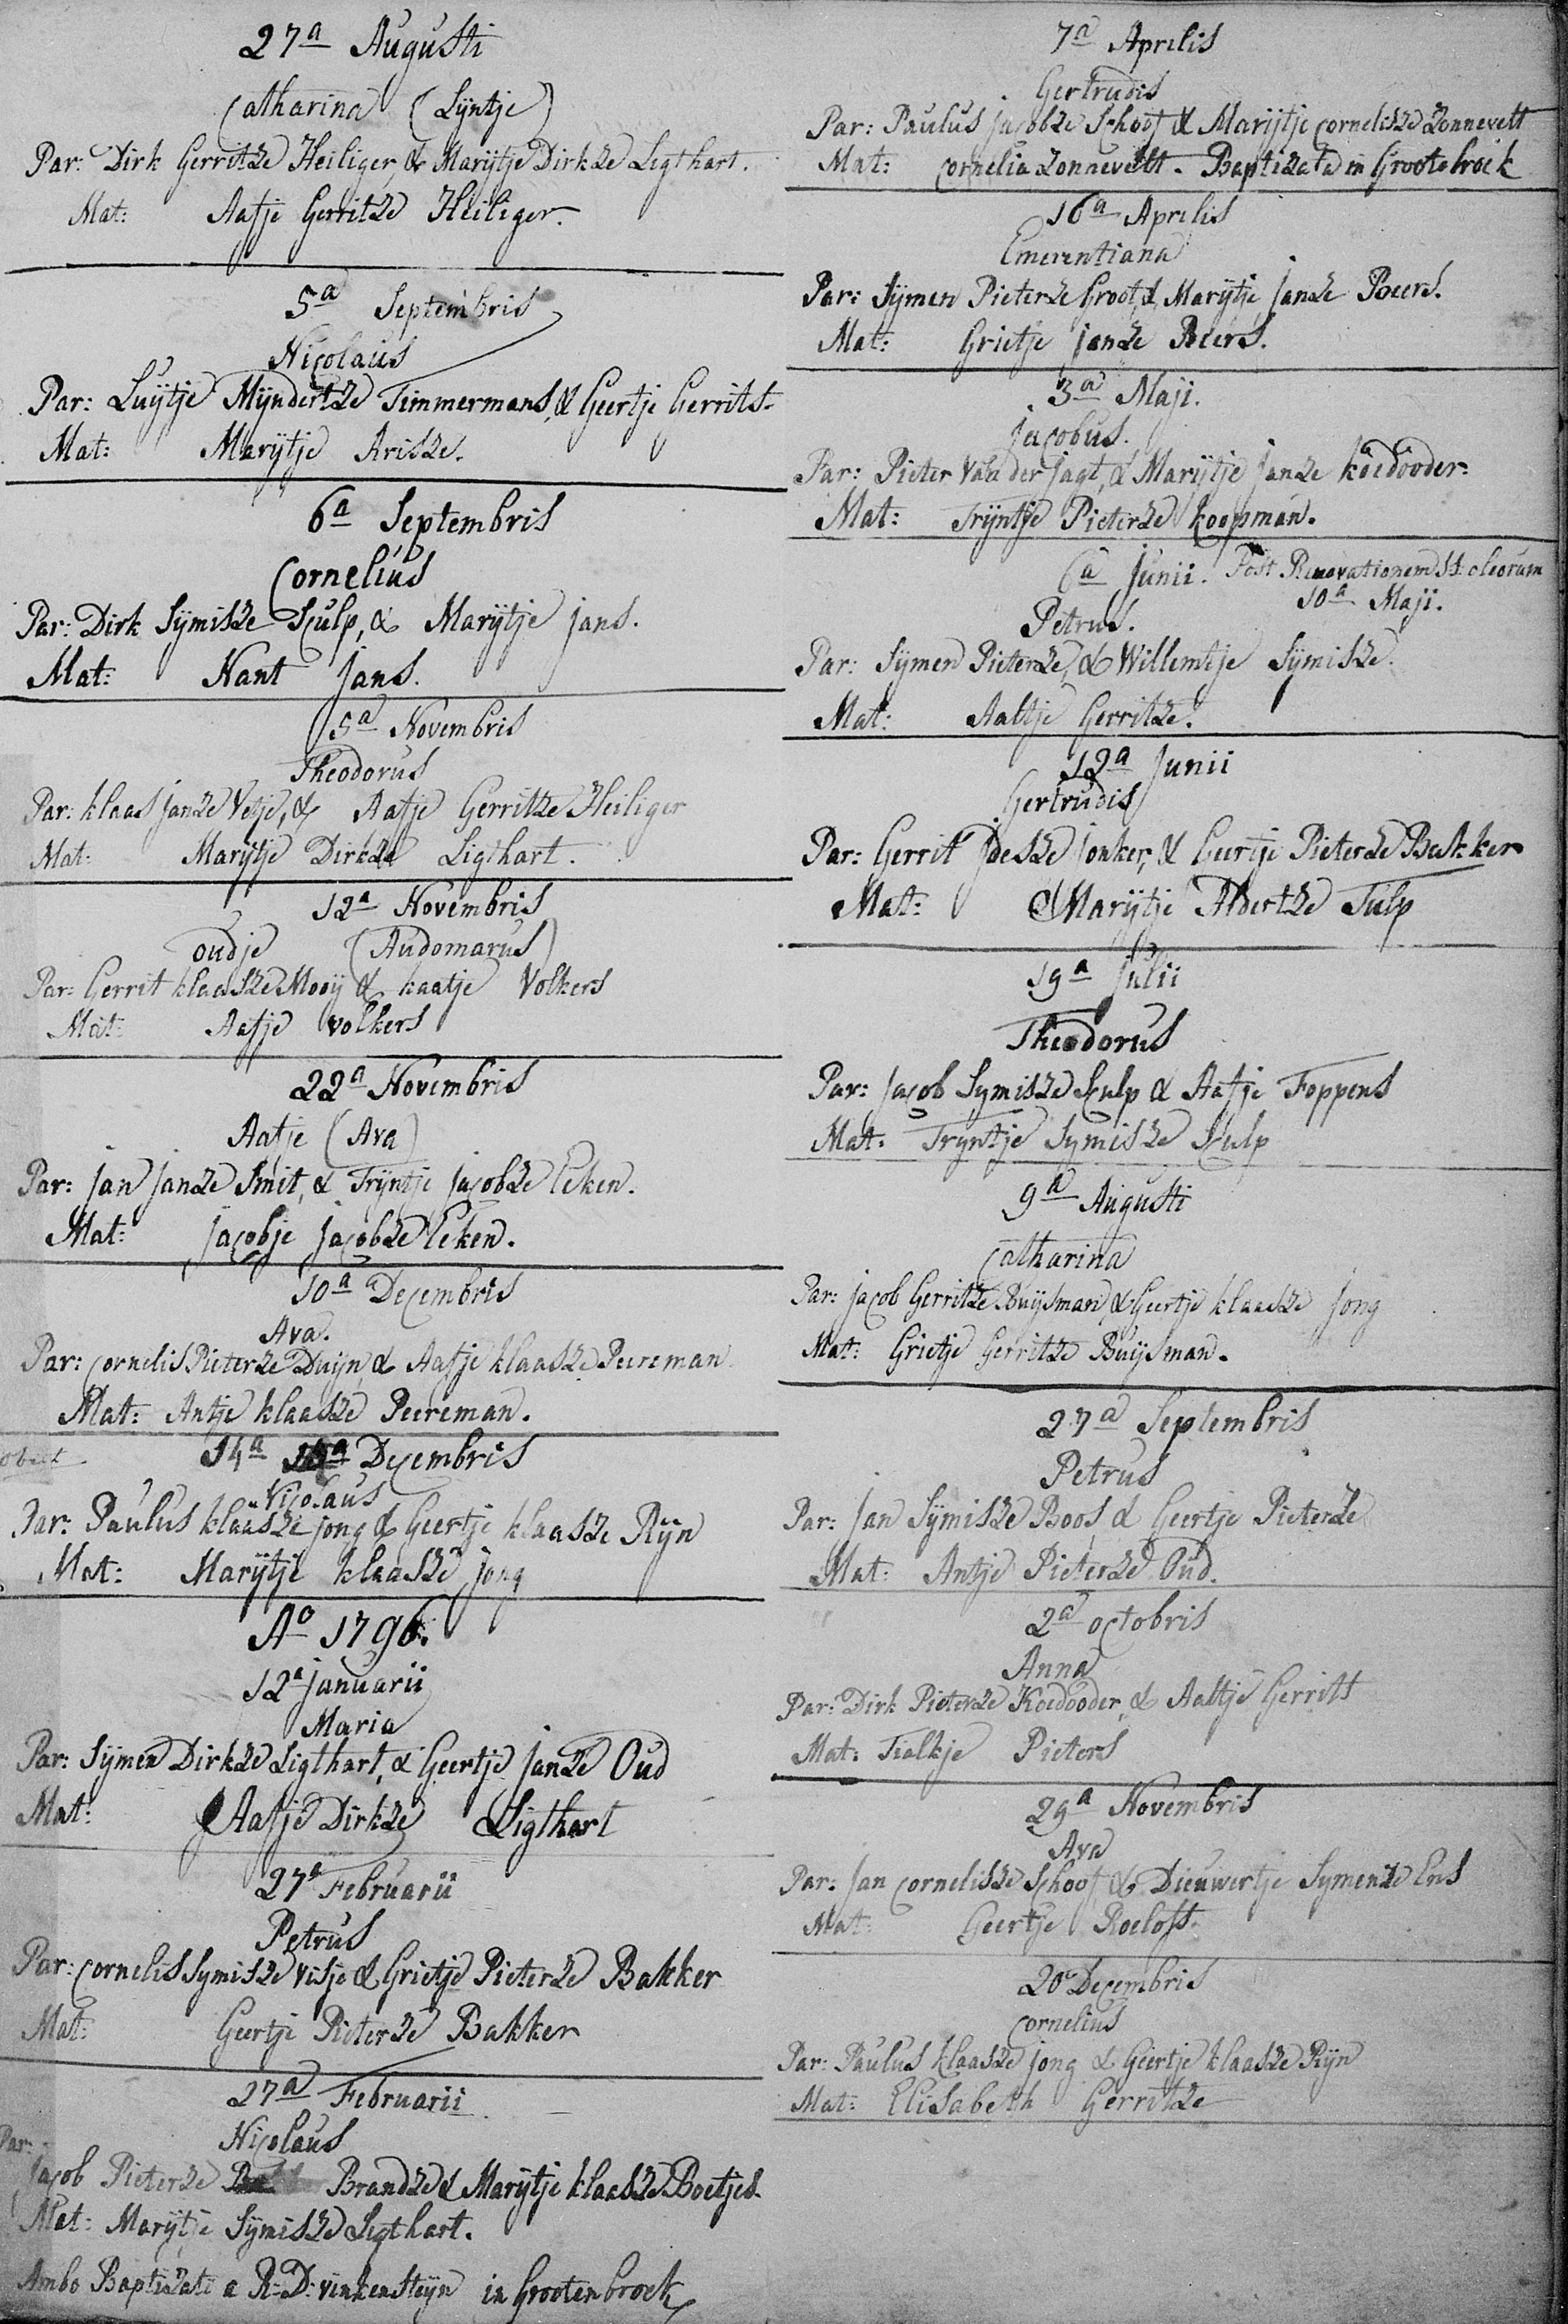 27a Augusti
Catharina (Lyntje)
Par: Dirk Gerritze Heiliger, & Marijtje Dirkze Ligthart.
Mat: Aafje Gerritze Heiliger.
5a Septembris
Nicolaus
Par: Luijtje Mijndertze Timmermans, & Geertje Gerrits.
Mat: Marijtje Arisze.
6a Septembris
Cornelius
Par: Dirk Sijmisze Sculp, & Marijtje Jans.
Mat: Nant Jans.
5a Novembris
Theodorus
Par: Klaas Janze Vetje, & Aafje Gerritze Heiliger
Mat: Marijtje Dirkze Ligthart.
12a Novembris
oudje (Audomarus)
Par: Gerrit Klaasze Mooij & Kaatje Volkers
Mat: Aafje Volkers
22a Novembris
Aatje (Ava)
Par: Jan Janze Smit, & Trijntje Jacobze Eeken.
Mat: Jacobje Jacobze Eeken.
10a Decembris
Ava.
Par: Cornelis Pieterze Duijn, & Aafje Klaasze Peereman
Mat: Antje Klaasze Peereman.
obiit 14a Decembris
Nicolaus
Par: Paulus Klaasze Jong & Geertje Klaasze Rijn
Mat: Marijtje Klaasze Jong
Ao 1796.
12a Januarii
Maria
Par: Sijmen Dirkze Ligthart, & Geertje Janze Oud
Mat: Aafje Dirkze Ligthart
27a Februarii
Petrus
Par: Cornelis Symisze Visje & Grietje Pieterze Bakker
Mat: Geertje Pieterze Bakker
27a Februarii
Nicolaus
Par:
Jacob Pieterze Brandze & Marijtje Klaasze Boetjes.
Mat: Marijtje Sijmisze Ligthart.
Ambo Baptizati a R: D: Vinkensteijn in Grootenbroek
7a Aprilis
Gertrudis
Par: Paulus Jacobze Schoof & Marijtje Cornelisze Zonnevelt
Mat: Cornelia Zonnevelt. Baptizata in Grootebroek
16a Aprilis
Emerentiana
Par: Sijmen Pieterze Groot, & Marijtje Janze Beers.
Mat: Grietje Janze Beers.
3a Maji.
Jacobus.
Par: Pieter Van der Jagt, & Marijtje Janze Koedooder.
Mat: Trijntje Pieterze Koopman.
6a Junii. Post Renovationem SS: oleorum
10a Maji.
Petrus.
Par: Sijmen Pieterze, & Willemtje Sijmisze.
Mat: Aaltje Gerritze.
12a Junii
Gertrudis
Par: Gerrit Jdesze Jonker, & Geertje Pieterze Bakker
Mat: Marijtje Aldertze Tulp
19a Julii
Theodorus
Par: Jacob Symisze Sculp & Aafje Foppens
Mat: Tryntje Symisze Sculp
9a Augusti
Catharina
Par: Jacob Gerritze Buijsman & Geertje Klaasze Jong
Mat: Grietje Gerritze Buijsman.
27a Septembris
Petrus
Par: Jan Sijmisze Boos, & Geertje Pieterze
Mat: Antje Pieterze Oud.
2a Octobris
Anna
Par: Dirk Pieterze Koedooder, & Aaltje Gerrits
Mat: Tialkje Pieters
29a Novembris
Ava
Par: Jan Cornelisze Schoof & Dieuwertje Symenze Ens
Mat: Geertje Roelofs.
20 Decembris
Cornelius
Par: Paulus Klaasze Jong & Geertje Klaasze Rijn
Mat: Elisabeth Gerritze